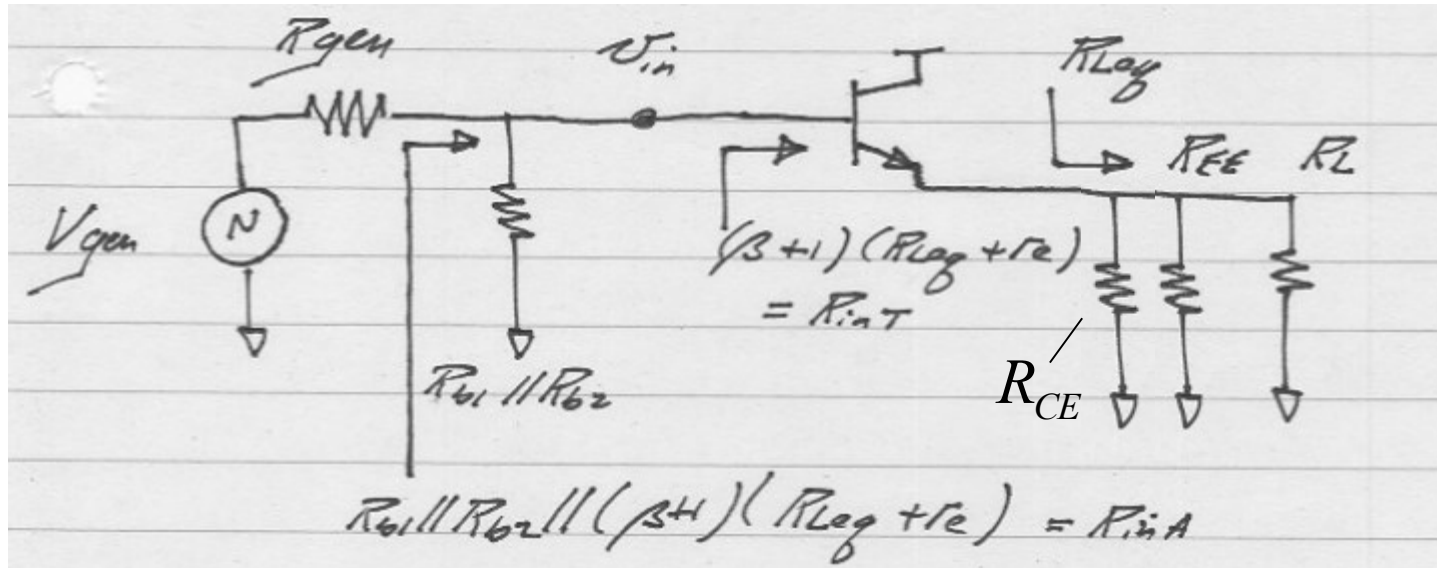 Rgen
Vin
RLeq
REE RL
Vgen
(β+1)(RLeq+re)
= RinT
Rb1//Rb2
RCE
Rb1//Rb2//(β+1)(RLeq+re) = RinA